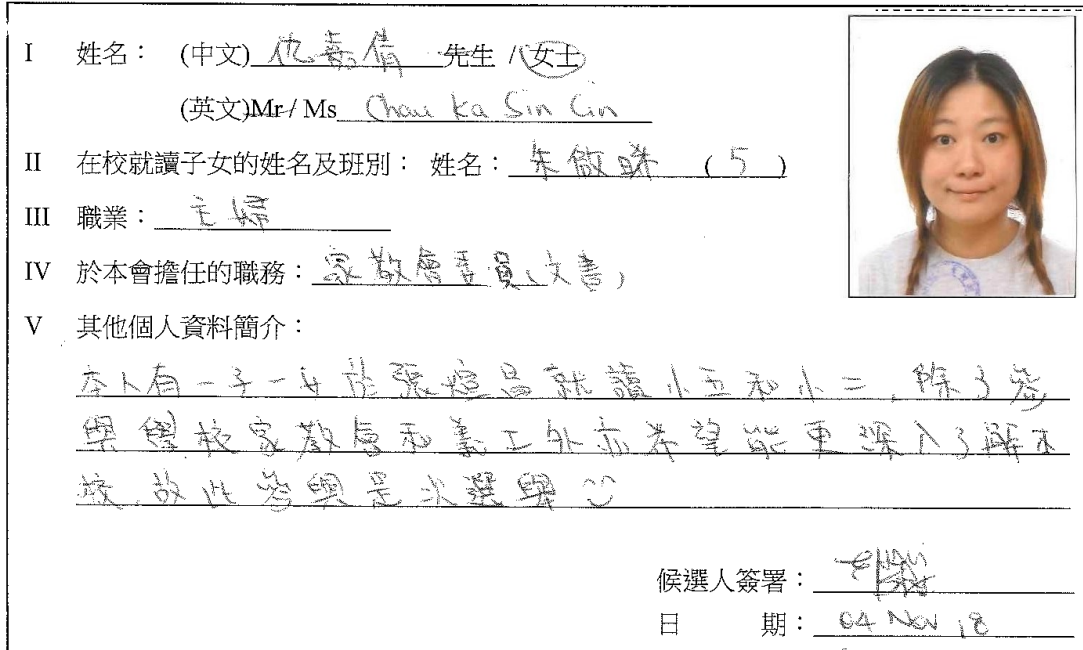 I 姓名： (中文) 仇嘉倩 先生 / 女士
(英文)Mr / Ms Chau Ka Sin Cin
II 在校就讀子女的姓名及班別： 姓名： 朱啟 ( 5 )
III 職業： 主婦
IV 於本會擔任的職務： 家教會委員、文書,
V 其他個人資料簡介：
本人有一子一女於張煊昌就讀小五和小二, 除了參
與學校家教會和義工外亦希望能更深入了解本
校, 故此參與是次選舉
候選人簽署：
日 期： 04 Nov 18